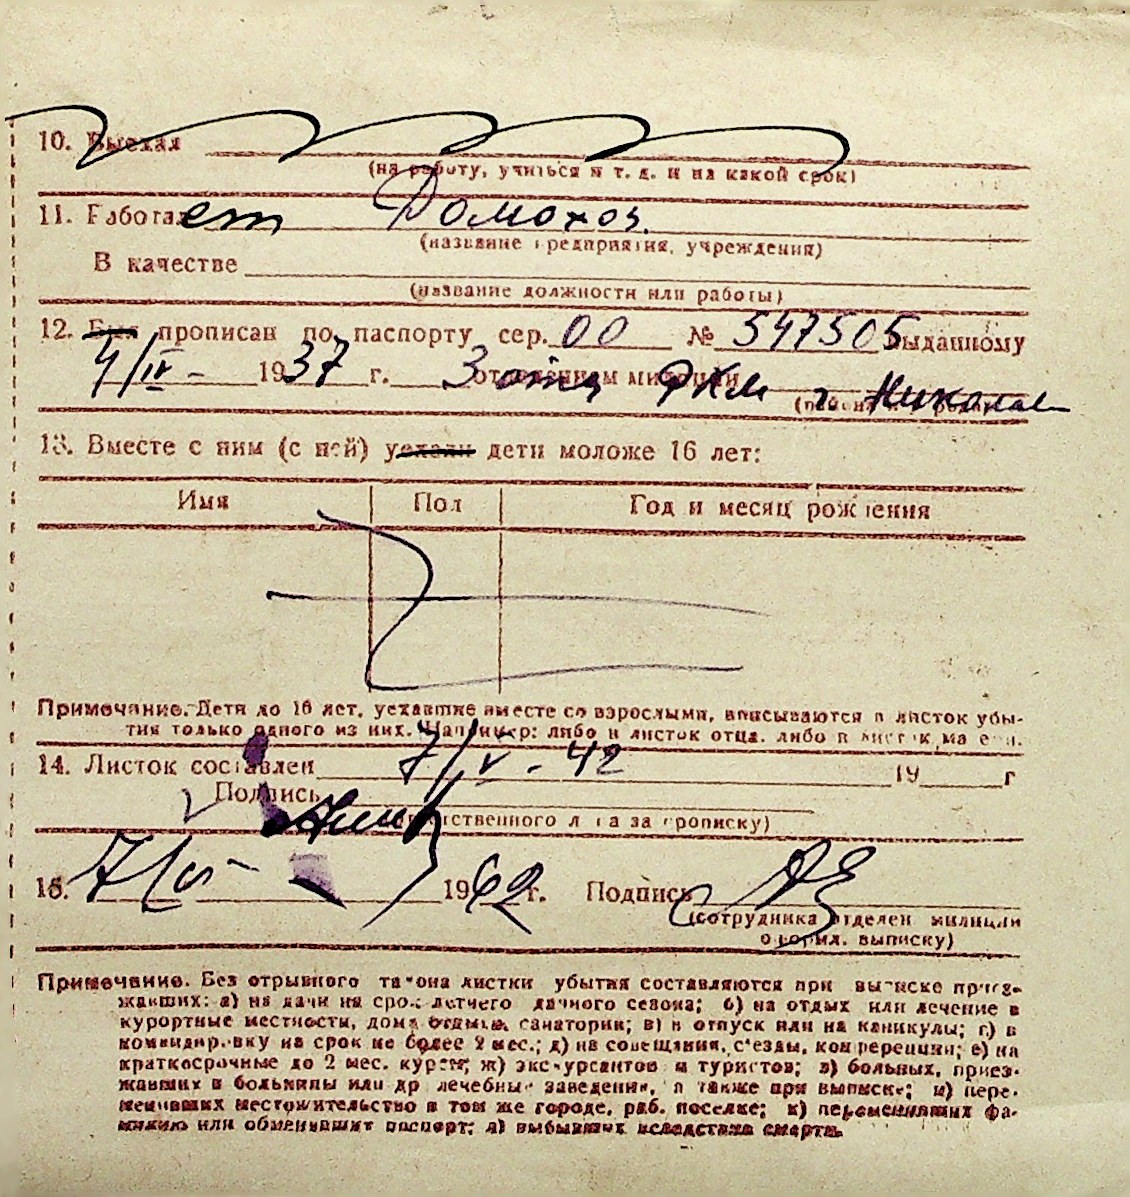 10. Выехал
(на работу, учиться и т. д. и на какой срок)
11. Работает Домохоз.
(название предприятия, учреждения)
В качестве
(название должности или работы)
12. Был прописан по паспорту сер. 00 № 547505 выданному
4/IV - 1937 г. 3 отд отделением милиции РКМ г Николаев
13. Вместе с ним (с ней) уехали дети моложе 16 лет:
Имя Пол Год и месяц рождения
Примечание. Дети до 16 лет, уехавшие вместе со взрослыми, вписываются в листок убы-
тия только одного из них. Например: либо в листок отца, либо в листок матери.
14. Листок составлен 7/V - 42 19 г
Подпись
(ответственного лица за прописку)
15. 7/VI - 1942 г. Подпись
(сотрудника отделен милиции
оформл. выписку)
Примечание. Без отрывного талона листки убытия составляются при выписке приез-
жавших: а) на дачи на срок летнего дачного сезона; б) на отдых или лечение в
курортные местности, дома отдыха, санатории; в) в отпуск или на каникулы; г) в
командировку на срок не более 2 мес.; д) на совещания, съезды, конференции; е) на
краткосрочные до 2 мес. курсы; ж) экскурсантов и туристов; з) больных, приез-
жавших в больницы или др лечебные заведения, а также при выписке; и) пере-
менивших местожительство в том же городе, раб. поселке; к) переменивших фа-
милию или обменивших паспорт; л) выбывших вследствие смерти.